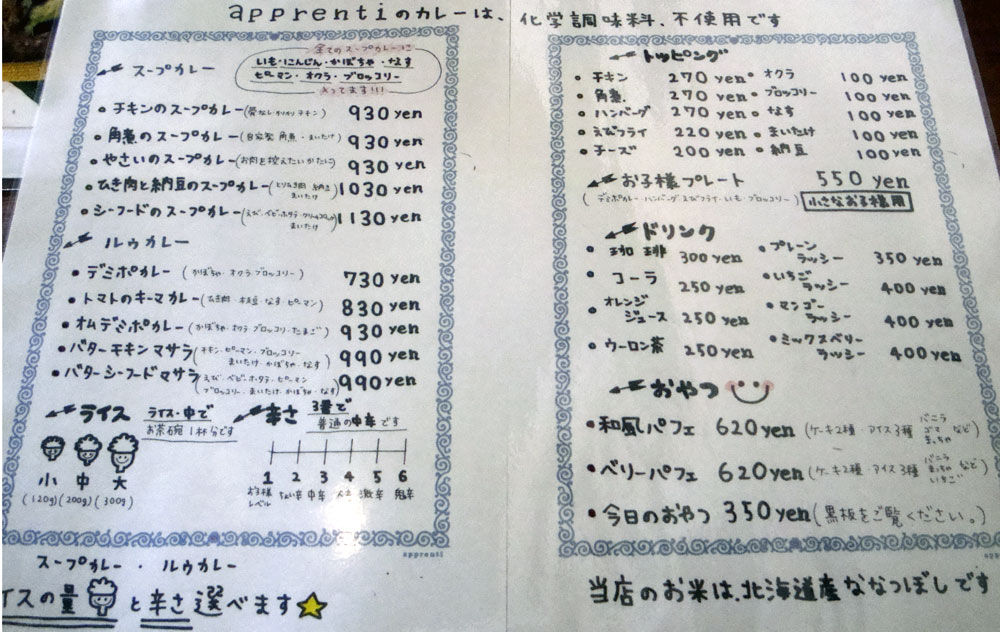 apprentiのカレーは、化学調味料、不使用です
スープカレー
全てのスープカレーに
いも・にんじん・かぼちゃ・なす
ピーマン・オクラ・ブロッコリー
入ってます!!!
チキンのスープカレー(骨なしかりかりチキン) 930 yen
角煮のスープカレー(自家製 角煮・まいたけ) 930 yen
やさいのスープカレー(お肉を控えたいかたに) 930 yen
ひき肉と納豆のスープカレー(とりひき肉 納豆 まいたけ) 1030 yen
シーフードのスープカレー(えび・ベビーホタテ・クリームコロッケ まいたけ) 1130 yen
ルウカレー
デミポカレー (かぼちゃ・オクラ・ブロッコリー) 730 yen
トマトのキーマカレー(ひき肉・枝豆・なす・ピーマン) 830 yen
オムデミポカレー(かぼちゃ・オクラ・ブロッコリー・たまご) 930 yen
バターチキンマサラ(チキン・ピーマン・ブロッコリー まいたけ・かぼちゃ・なす) 990 yen
バターシーフードマサラ(えび・ベビーホタテ・ピーマン ブロッコリー・まいたけ・かぼちゃ・なす) 990 yen
ライス ライス・中で
お茶碗1杯分です
小 中 大
(120g) (200g) (300g)
辛さ 3番で
普通の中辛です
1 2 3 4 5 6
お子様レベル ちょい辛 中辛 大辛 激辛 鬼辛
apprenti
スープカレー・ルウカレー
イスの量 と辛さ選べます
トッピング
チキン 270 yen オクラ 100 yen
角煮 270 yen ブロッコリー 100 yen
ハンバーグ 270 yen なす 100 yen
えびフライ 220 yen まいたけ 100 yen
チーズ 200 yen 納豆 100 yen
お子様プレート 550 yen
(デミポカレー・ハンバーグ・えびフライ・いも・ブロッコリー) 小さなお子様用
ドリンク
珈琲 300 yen プレーンラッシー 350 yen
コーラ 250 yen いちごラッシー 400 yen
オレンジジュース 250 yen マンゴーラッシー 400 yen
ウーロン茶 250 yen ミックスベリーラッシー 400 yen
おやつ
和風パフェ 620 yen (ケーキ2種・アイス3種 バニラ ゴマ まっちゃ など)
ベリーパフェ 620 yen (ケーキ2種・アイス3種 バニラ まっちゃ いちご など)
今日のおやつ 350 yen (黒板をご覧ください。)
app
当店のお米は、北海道産ななつぼしです